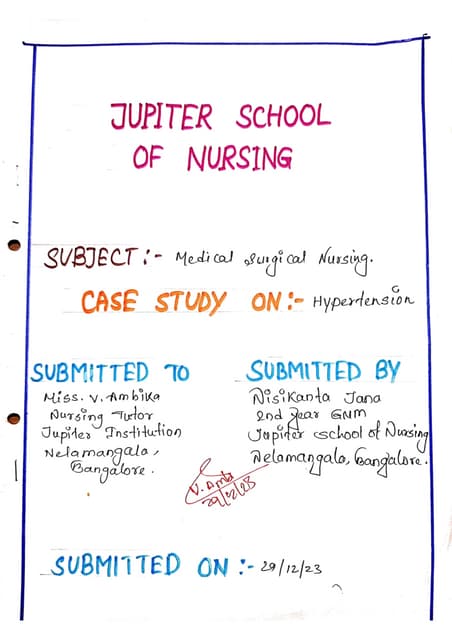 JUPITER SCHOOL
OF NURSING
SUBJECT :- Medical Surgical Nursing.
CASE STUDY ON :- Hypertension
SUBMITTED TO
Miss. V. Ambika
Nursing Tutor
Jupiter Institution
Nelamangala,
Bangalore.
SUBMITTED BY
Nisikanta Jana
2nd Year GNM
Jupiter School of Nursing
Nelamangala, Bangalore.
V. Amb
29/12/23
SUBMITTED ON :- 29/12/23